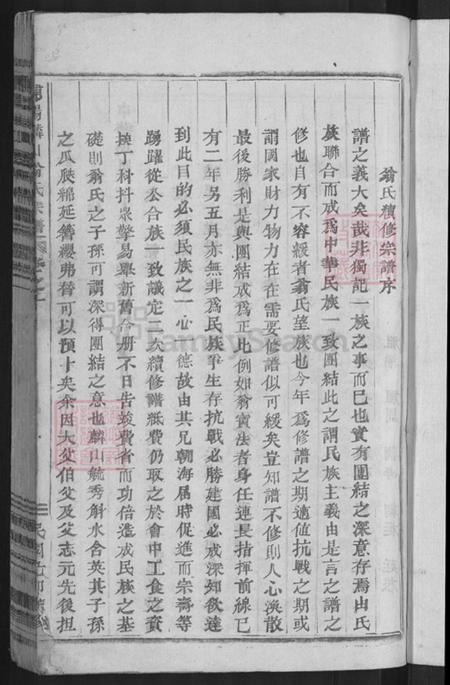 翁氏續修宗譜序
譜之義大矣哉非獨記一族之事而已也實有團結之深意存焉由氏
族聯合而成爲中華民族一致團結此之謂民族主義由是言之譜之
修也自有不容緩者翁氏望族也今年爲修譜之期適値抗戰之期或
謂國家財力物力在在需要修譜似可緩矣豈知譜不修則人心渙散
最後勝利是與團結成爲正比例如翁賁法者身任連長指揮前線已
有二年另五月亦無非爲民族爭生存抗戰必勝建國必成深知欲達
到此目的必須民族之一心一德故由其兄朝海屆時促進而宗壽等
踴躍從公合族一致議定三次續修譜紙費仍取之於會中工食之資
挨丁科抖衆擎易舉新舊合册不日告竣費省而功倍造成民族之基
礎則翁氏之子孫可謂深得團結之意也麟山毓秀斛水含英其子孫
之瓜瓞綿延簪纓弗替可以預卜矣余因大父伯父及父志元先後担
氏宗譜
民國
FamilySearch